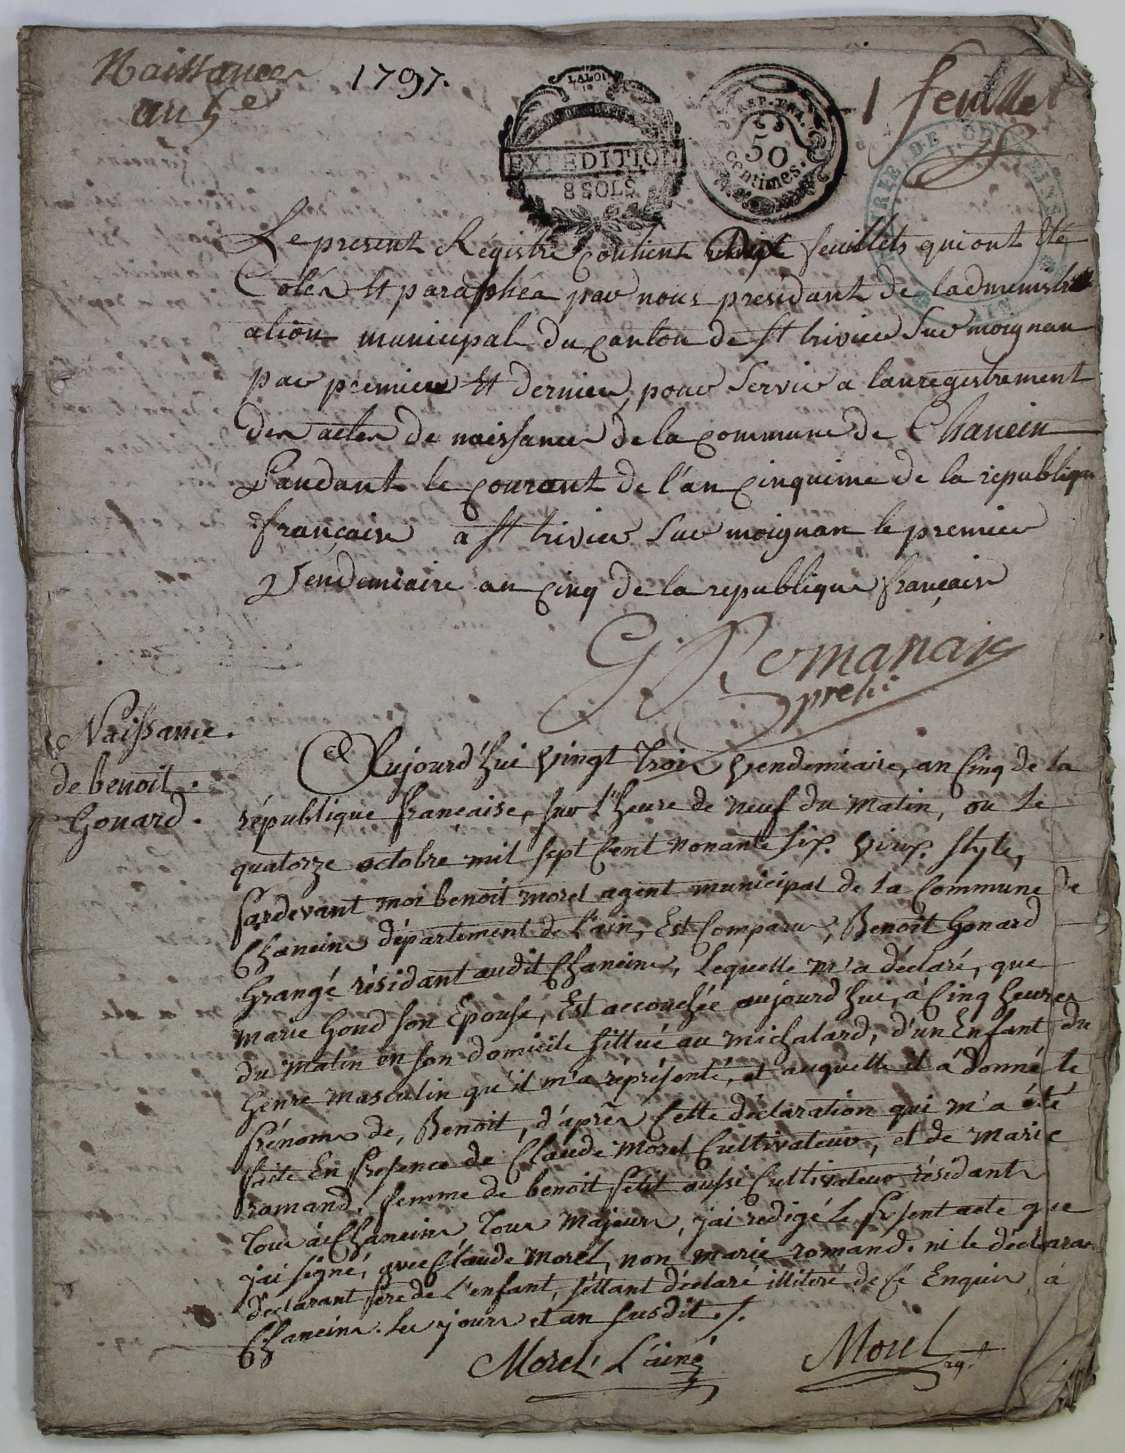 Naissances 1797. 1 feuillet
an 5e
LALOI
EXPEDITION
8 SOLS
REP. FRA.
50
centimes.
MAIRIE DE
Le present Régistre contient feuillets qui ont été
Cotés et paraphés par nous presidant de ladmenistr
ation municipal du canton de St trivier Sur moignan
par premier et dernier, pour Servir a lanregistrement
des actes de naissances de la commune de Chanein
Pandant le courant de l'an cinquime de la republique
française a St trivier Sur moignan le premier
Vendemiaire an cinq de la republique française
G Romanans
presi:
Naissance.
de benoit.
Gonard.
Aujourd'hui vingt trois vendemiaire, an cinq de la
république française, sur l'heure de neuf du matin, ou le
quatorze octobre mil sept cent nonante six. vieux. style,
pardevant moi benoit morel agent municipal de la Commune de
Chaneins département de l'ain, Est Comparu, Benoît Gonard
Grangé résidant audit Chaneins, lequelle m'a déclaré, que
marie Gond son Epouse, Est accouchée aujourd'hui, à cinq heures
du matin en son domicile sittué au michalard, d'un Enfant du
Genre masculin qu'il m'a réprésenté, et auquelle il á donné le
prénoms de, Benoît, d'après Cette déclaration qui m'a été
faite En presence de Claude morel Cultivateur, et de marie
romand, femme de benoit petit aussi Cultivateur résidants
tous à Chaneins tous majeurs, j'ai redigé le present acte que
j'ai signé, avec Claude morel, non marie romand. ni le déclara
déclarant père de l'enfant, s'éttant déclaré illiteré de ce Enquis à
Chaneins. les jours et an susdit ./.
Morel L'ainé Morel ag.t